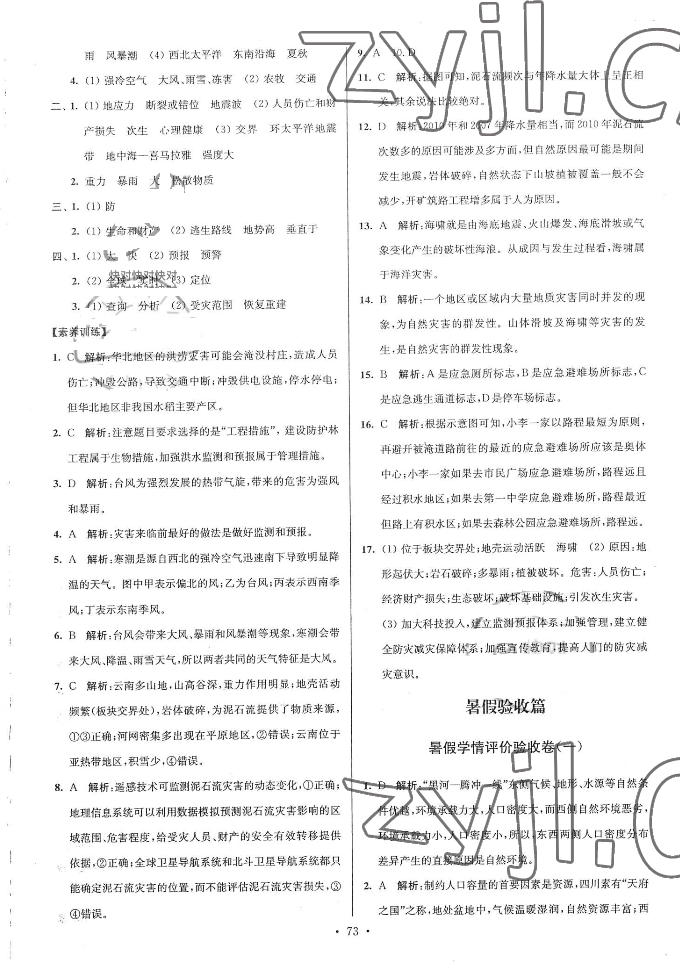 雨 风暴潮 (4) 西北太平洋 东南沿海 夏秋
4. (1) 强冷空气 大风、雨雪、冻害 (2) 农牧 交通
二、1. (1) 地应力 断裂或错位 地震波 (2) 人员伤亡和财
产损失 次生 心理健康 (3) 交界 环太平洋地震
带 地中海—喜马拉雅 强度大
2. 重力 暴雨 松散物质
三、1. (1) 防
2. (1) 生命和财产 (2) 逃生路线 地势高 垂直于
四、1. (1) 大 快 (2) 预报 预警
2. (2) 全球 实时 (3) 定位
快对快对快对
3. (1) 查询 分析 (2) 受灾范围 恢复重建
【素养训练】
1. C 解析:华北地区的洪涝灾害可能会淹没村庄,造成人员
伤亡;冲毁公路,导致交通中断;冲毁供电设施,停水停电;
但华北地区非我国水稻主要产区。
2. C 解析:注意题目要求选择的是“工程措施”,建设防护林
工程属于生物措施,加强洪水监测和预报属于管理措施。
3. D 解析:台风为强烈发展的热带气旋,带来的危害为强风
和暴雨。
4. A 解析:灾害来临前最好的做法是做好监测和预报。
5. A 解析:寒潮是源自西北的强冷空气迅速南下导致明显降
温的天气。图中甲表示偏北的风;乙为台风;丙表示西南季
风;丁表示东南季风。
6. B 解析:台风会带来大风、暴雨和风暴潮等现象,寒潮会带
来大风、降温、雨雪天气,所以两者共同的天气特征是大风。
7. C 解析:云南多山地,山高谷深,重力作用明显;地壳活动
频繁(板块交界处),岩体破碎,为泥石流提供了物质来源,
①③正确;河网密集多出现在平原地区,②错误;云南位于
亚热带地区,④错误。
8. A 解析:遥感技术可监测泥石流灾害的动态变化,①正确;
地理信息系统可以利用数据模拟预测泥石流灾害影响的区
域范围、危害程度,给受灾人员、财产的安全有效转移提供
依据,②正确;全球卫星导航系统和北斗卫星导航系统只
能确定泥石流灾害的位置,而不能评估泥石流灾害损失,③
④错误。
9. A 10. D
11. C 解析:据图可知,泥石流频次与年降水量大体上呈正相
关,其余说法比较绝对。
12. D 解析:2010年和2007年降水量相当,而2010年泥石流
次数多的原因可能涉及多方面,但自然原因最可能是期间
发生地震,岩体破碎,自然状态下山坡植被覆盖一般不会
减少,开矿筑路工程增多属于人为原因。
13. A 解析:海啸就是由海底地震、火山爆发、海底滑坡或气
象变化产生的破坏性海浪。从成因与发生过程看,海啸属
于海洋灾害。
14. B 解析:一个地区或区域内大量地质灾害同时并发的现
象,为灾害的群发性。山体滑坡及海啸等灾害的多发现
象,是灾害的群发性现象。
15. B 解析:A是应急厕所标志,B是应急避难场所标志,C
是应急逃生通道标志,D是停车场标志。
16. C 解析:根据示意图可知,小李一家以路程最短为原则,
再避开被淹道路前往的最近的应急避难场所应该是奥体
中心;小李一家如果去市民广场应急避难场所,路程远且
经过积水地区;如果去第一中学应急避难场所,路程最近
但路上有积水区;如果去森林公园应急避难场所,路程远。
17. (1) 位于板块交界处;地壳运动活跃 海啸 (2) 原因:地
形起伏大;岩石破碎;多暴雨;植被破坏。危害:人员伤亡;
经济财产损失;生态破坏;破坏基础设施;引发次生灾害。
(3) 加大科技投入,建立监测预报体系;加强管理,建立健
全防灾减灾保障体系;加强宣传教育,提高人们的防灾减
灾意识。
暑假验收篇
暑假学情评价验收卷(一)
1. D 解析:“黑河—腾冲一线”东侧气候、地形、水源等自然条
件优越,环境承载力大,人口密度大,而西侧自然环境恶劣,
环境承载力小,人口密度小,所以,东西两侧人口密度分布
差异产生的直接原因是自然环境。
2. A 解析:制约人口容量的首要因素是资源,四川素有“天府
之国”之称,地处盆地中,气候温暖湿润,自然资源丰富;西
• 73 •
zyjl.c
zyjl.c